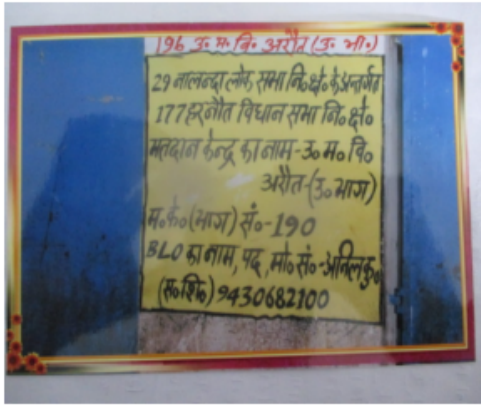 196 उ॰ म॰ वि॰ अरौत (उ॰ भा॰)
29 नालन्दा लोक सभा नि॰ क्षे॰ के अन्तर्गत
177 हरनौत विधान सभा नि॰ क्षे॰
मतदान केन्द्र का नाम - उ॰ म॰ वि॰
अरौत - (उ॰ भाग)
म॰ के॰ (भाग) सं॰ - 190
BLO का नाम, पद, मो॰ सं॰ - अनिल कु॰
(स॰ शि॰) 9430682100